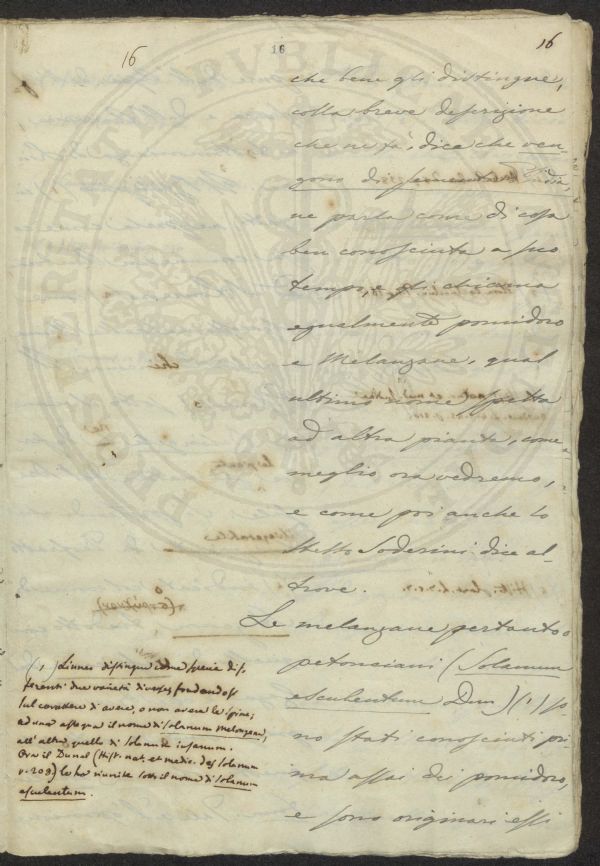 16
16
16
che bene gli distingue,
colla breve descrizione
che ne fà, dice che ven-
gono di
ne parla come di cosa
ben conosciuta a suo
tempo, e gli chiama
egualmente pomidoro
e Melanzane, qual
ultimo nome spetta
ad altra pianta, come
meglio ora vedremo,
e come poi anche lo
stesso Soderini dice al-
trove.
Le melanzane pertanto o
petonciani (Solanum
esculentum Dun) (1) so
no stati conosciuti pri
ma assai dei pomidoro,
e sono originari essi
(1) Linneo distingue come specie dif-
ferenti due varietà diverse fondandosi
sul carattere di avere, o non avere le spine;
ad una assegna il nome di Solanum Melongena,
all'altra quello di Solanum insanum.
Ora il Dunal (Hist. nat. et medic. des Solanum
p. 208) le ha riunite sotto il nome di Solanum
esculentum.